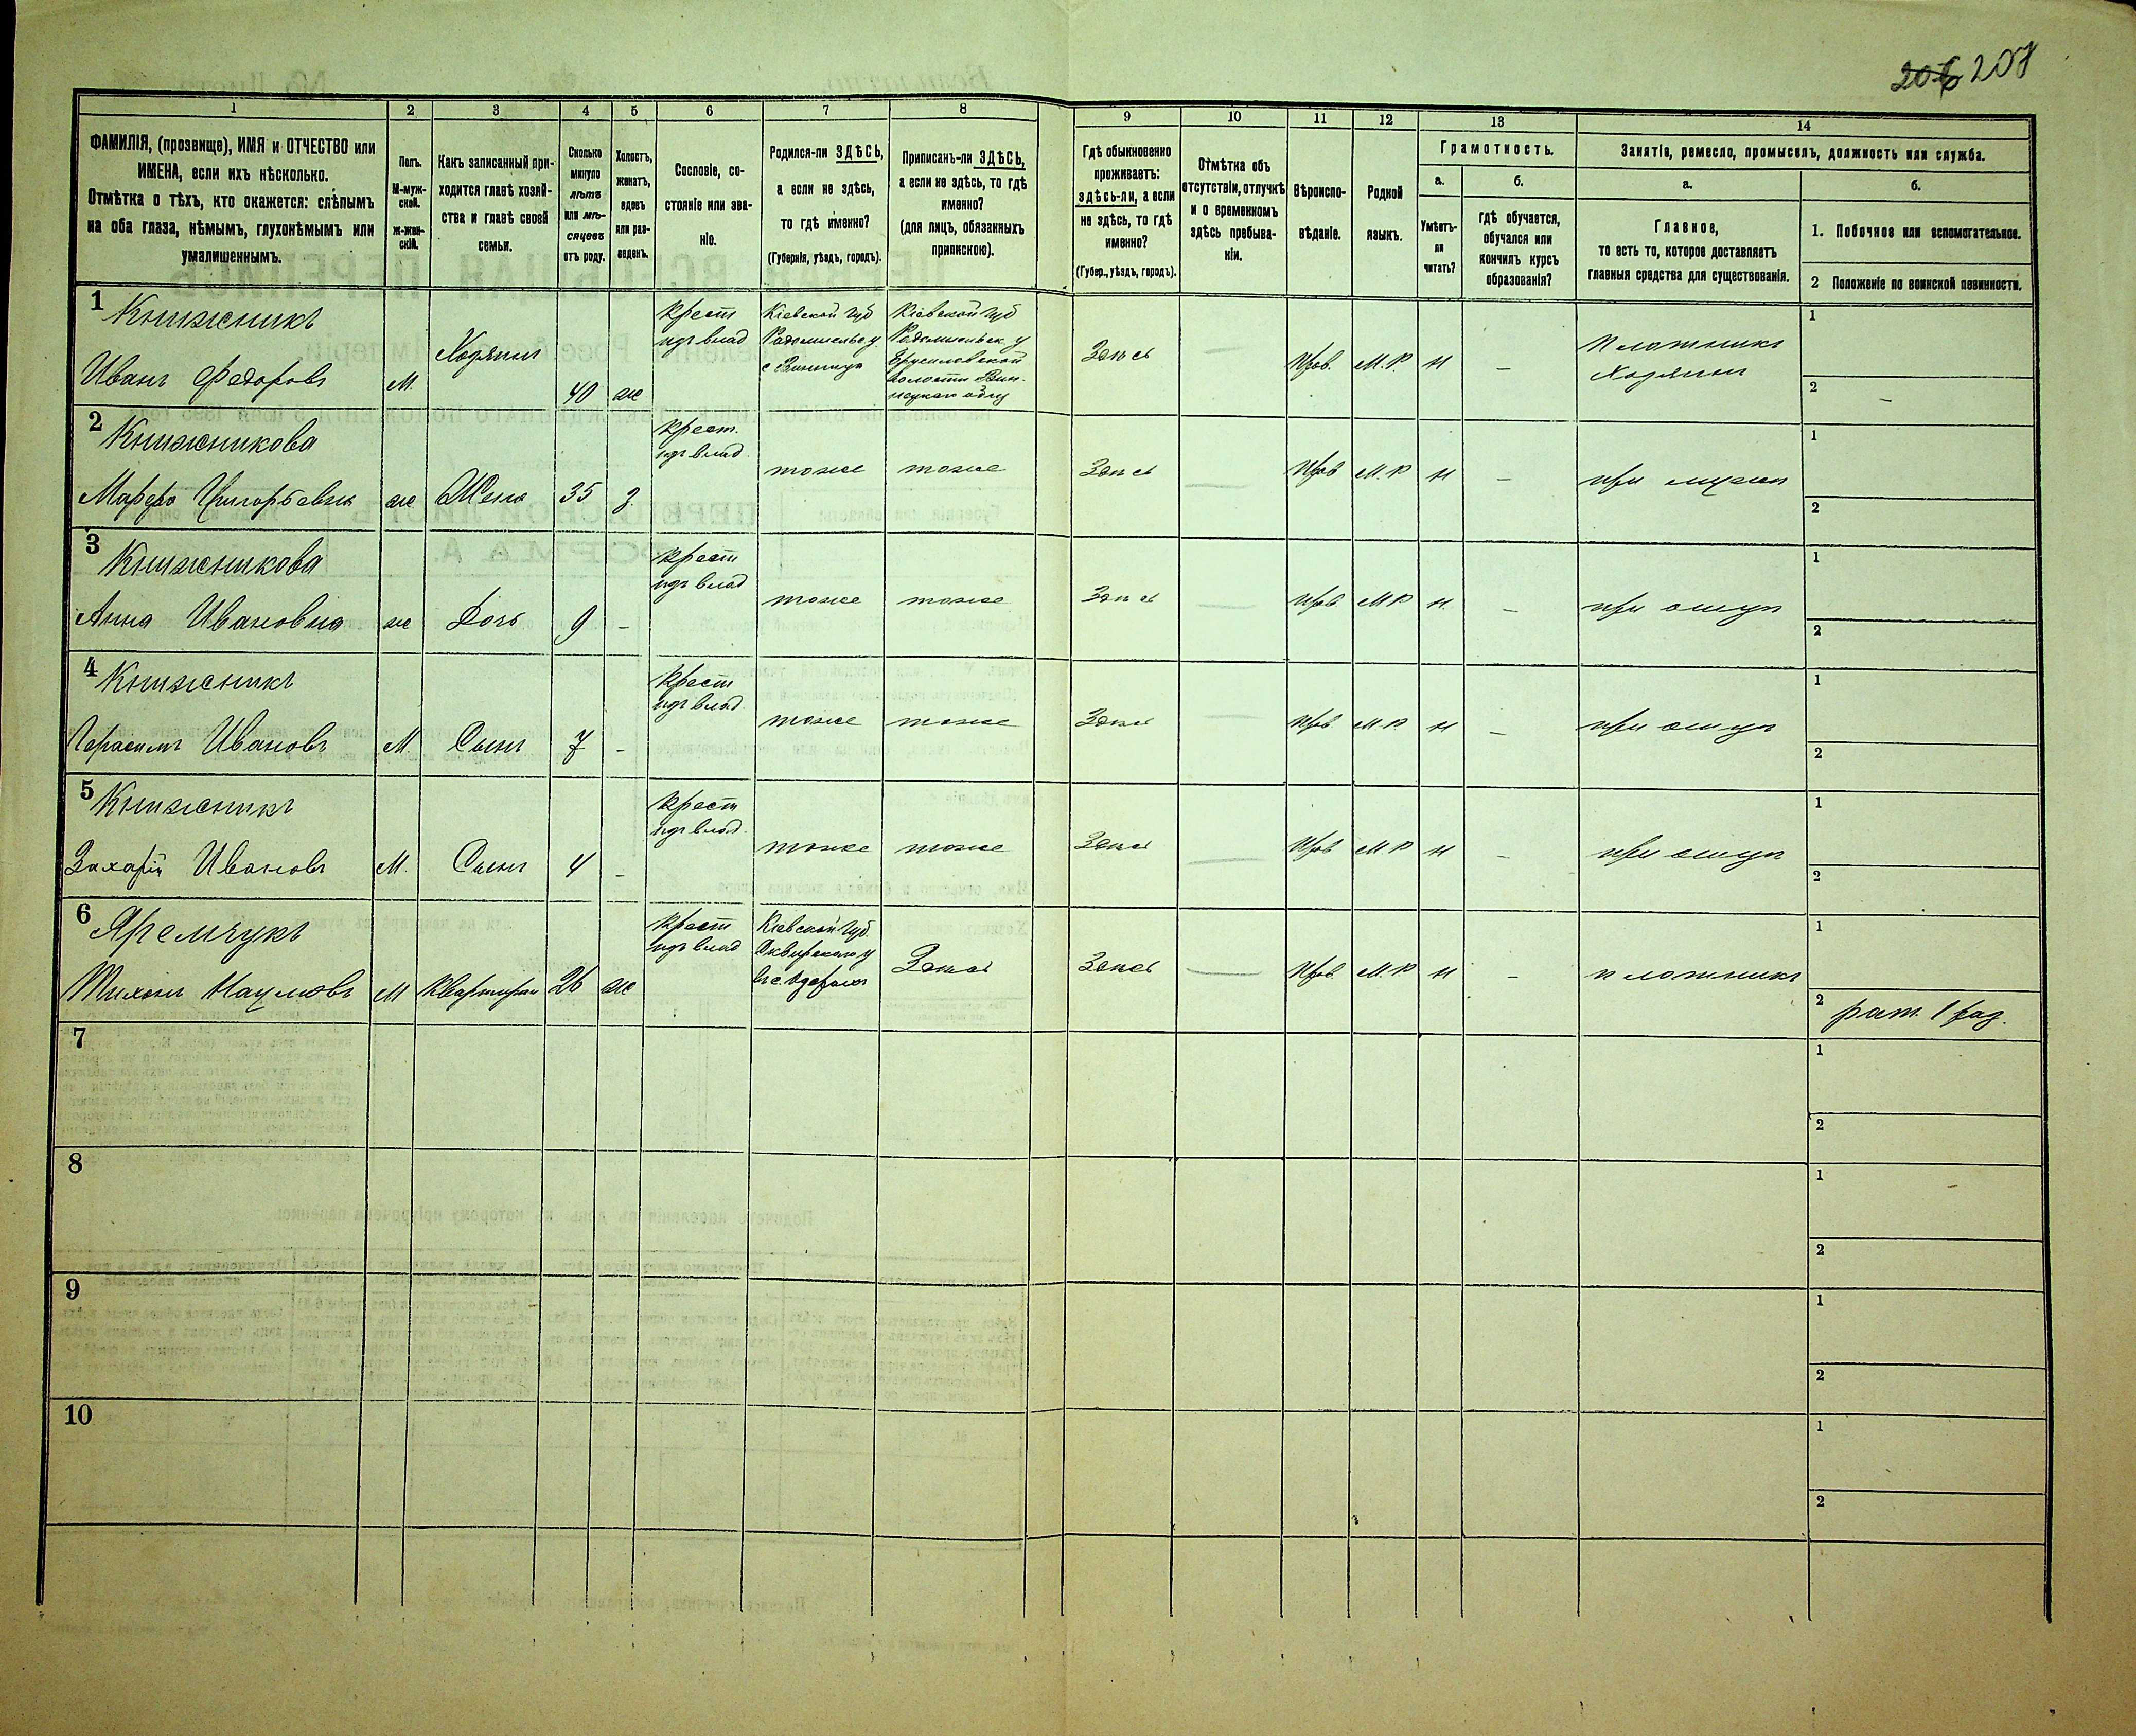 206 207
1 2 3 4 5 6 7 8 9 10 11 12 13 14
ФАМИЛІЯ, (прозвище), ИМЯ и ОТЧЕСТВО или
ИМЕНА, если ихъ нѣсколько.
Отмѣтка о тѣхъ, кто окажется: слѣпымъ
на оба глаза, нѣмымъ, глухонѣмымъ или
умалишеннымъ.
Полъ.
М-муж-
ской.
Ж-жен-
скій.
Какъ записанный при-
ходится главѣ хозяй-
ства и главѣ своей
семьи.
Сколько
минуло
лѣтъ
или мѣ-
сяцевъ
отъ роду.
Холостъ,
женатъ,
вдовъ
или раз-
веденъ.
Сословіе, со-
стояніе или зва-
ніе.
Родился-ли ЗДѢСЬ,
а если не здѣсь,
то гдѣ именно?
(Губернія, уѣздъ, городъ).
Приписанъ-ли ЗДѢСЬ,
а если не здѣсь, то гдѣ
именно?
(для лицъ, обязанныхъ
припискою).
Гдѣ обыкновенно
проживаетъ:
здѣсь-ли, а если
не здѣсь, то гдѣ
именно?
(Губер., уѣздъ, городъ).
Отмѣтка объ
отсутствіи, отлучкѣ
и о временномъ
здѣсь пребыва-
ніи.
Вѣроиспо-
вѣданіе.
Родной
языкъ.
Грамотность.
а.
Умѣетъ-
ли
читать?
б.
гдѣ обучается,
обучался или
кончилъ курсъ
образованія?
Занятіе, ремесло, промыселъ, должность или служба.
а.
Главное,
то есть то, которое доставляетъ
главныя средства для существованія.
б.
1. Побочное или вспомогательное.
2 Положеніе по воинской повинности.
1 Книжникъ
Иванъ Федоровъ
М.
Хозяинъ
40
ж
крест
изъ влад
Кіевской губ
Радомысльс у.
с Вильшка
Кіевской губ
Радомысльск. у
Брусиловской
волости
Здѣсь
—
Прав.
М.Р.
Н
—
Плотникъ
Хозяинъ
1
2 —
2 Книжникова
Марфа Григорьевна
ж
Жена
35
з.
крест.
изъ влад.
тоже
тоже
Здѣсь
—
Прав
М.Р
Н
—
при мужѣ
1
2
3 Книжникова
Анна Ивановна
ж
Дочь
9
—
крест
изъ влад
тоже
тоже
Здѣсь
—
Прав
М Р
Н.
—
при отцѣ
1
2
4 Книжникъ
Герасимъ Ивановъ
М.
Сынъ
7
—
крест
изъ влад.
тоже
тоже
Здѣсь
—
Прав
М.Р.
Н
—
при отцѣ
1
2
5 Книжникъ
Захарій Ивановъ
М.
Сынъ
4
—
крест
изъ влад.
тоже
тоже
Здѣсь
—
Прав
М Р
Н
—
при отцѣ
1
2
6 Яремчукъ
Тихонъ Наумовъ
М
Квартиран
26
ж
крест
изъ влад
Кіевской губ.
Сквирскаго у
Здѣсь
Здѣсь
—
Прав
М.Р
Н
—
плотникъ
1
2 рат. 1 раз.
7
1
2
8
1
2
9
1
2
10
1
2